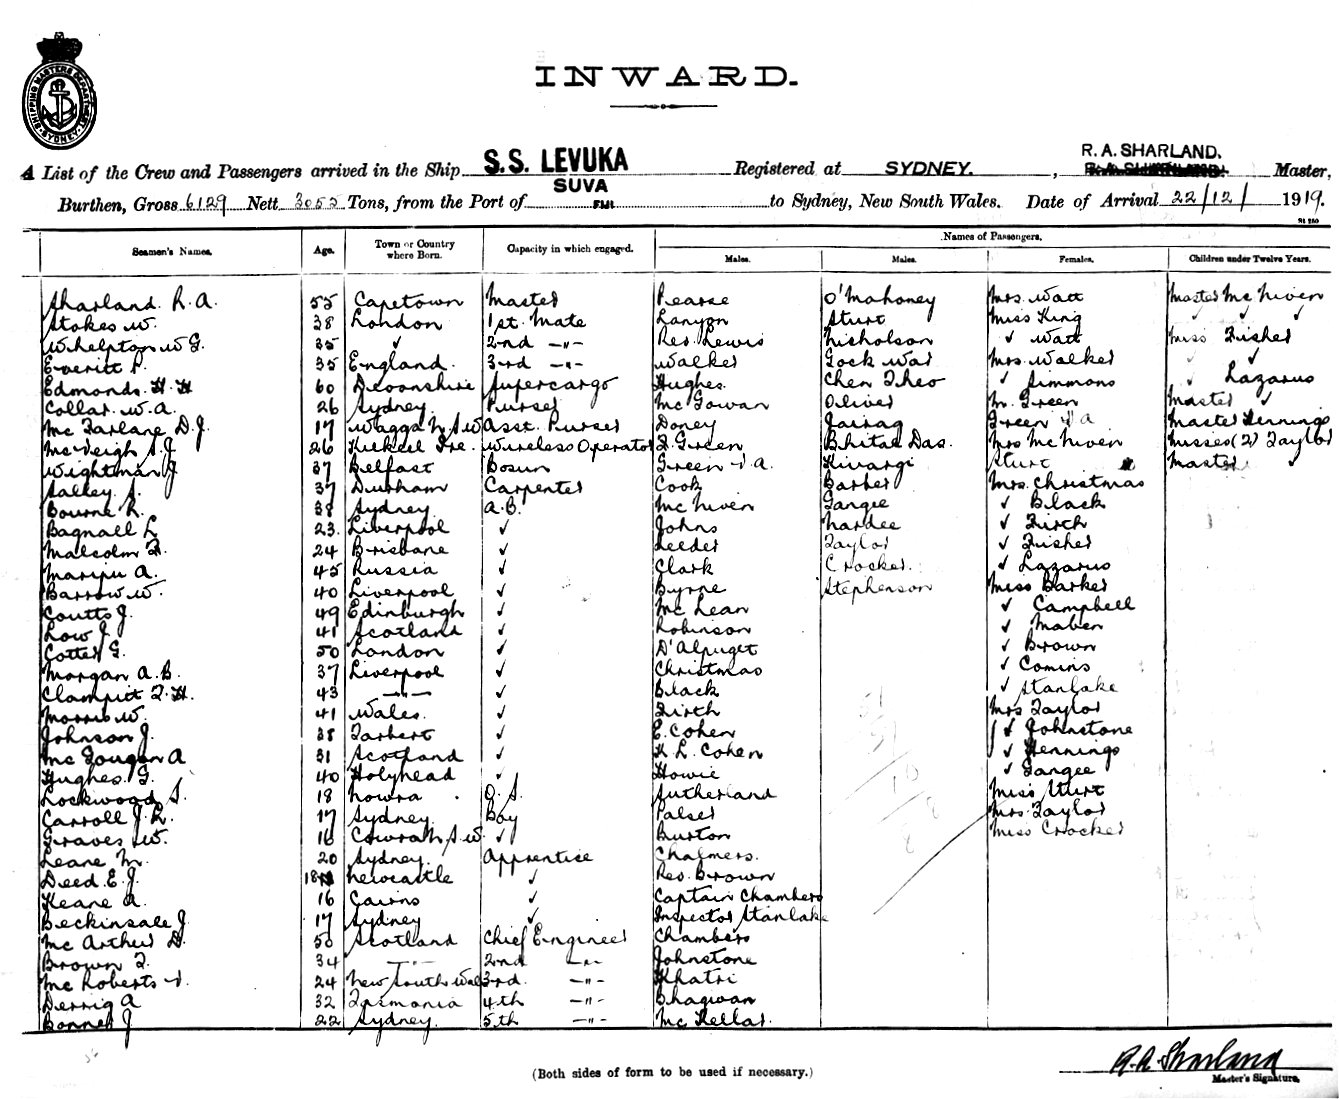 SHIPPING MASTERS DEPARTMENT SYDNEY
INWARD.
A List of the Crew and Passengers arrived in the Ship S.S. LEVUKA Registered at SYDNEY. , R. A. SHARLAND. Master,
Burthen, Gross 6129 Nett Tons, from the Port of SUVA FIJI to Sydney, New South Wales. Date of Arrival 22/12/ 1919.
Names of Passengers.
Seamen's Names. Age. Town or Country where Born. Capacity in which engaged. Males. Males. Females. Children under Twelve Years.
Sharland R. A. 55 Capetown Master Pearse O'Mahoney Mrs. Watt Master McNiven
Stokes W. 38 London 1st. Mate Lanyon Sturt Miss King ✓ ✓ ✓
Whelpton W G. 35 ✓ 2nd -"- Rev. Lewis Nicholson ✓ Watt Miss Fisher
Everitt P. 35 England. 3rd -"- Walker Gock War Mrs. Walker ✓ ✓
Edmonds H. H 60 Devonshire Supercargo Hughes. Chen Theo ✓ Simmons ✓ Lazarus
Collar W. A. 26 Sydney. Purser McGowan Oliver M. Green Master ✓
McFarlane D. J 17 Wagga N.S.W Asst. Purser Doney Jairag Green A Master Hennings
McVeigh S. J 26 Ire. Wireless Operator F Green Bhital Das. Mrs McNiven Misses (2) Taylor
Wightman J 37 Belfast Bosun Green A. Kivargi Sturt Master ✓
Salley S. 37 Durham Carpenter Cook Barber Mrs. Christmas
Bourne R. 38 Sydney A.B. McNiven Gangee ✓ Black
Bagnall L 23. Liverpool ✓ Johns Hardee ✓ Firth
Malcolm F. 24 Brisbane ✓ Leeder Taylor ✓ Fisher
A. 45 Russia ✓ Clark Crocker. ✓ Lazarus
Barrow W. 40 Liverpool ✓ Byrne Stephenson Miss Barker
Coutts J. 49 Edinburgh ✓ McLean ✓ Campbell
Low J 41 Scotland ✓ Robinson ✓ Maben
Cotter G. 50 London ✓ D'Alpuget ✓ Brown
Morgan A. B. 37 Liverpool ✓ Christmas ✓ Comins
Clampitt F. H. 43 -"- ✓ Black ✓ Stanlake
Morris W. 41 Wales. ✓ Firth Mrs Taylor
Johnson J. 38 Tarbert ✓ E. Cohen ✓ Johnstone
McGougan A 31 Scotland ✓ H L. Cohen ✓ Hennings
Hughes. G. 40 Holyhead ✓ Howie ✓ Gangee
Lockwood S. 18 Nowra . O. S. Sutherland Miss Sturt
Carroll J. R. 17 Sydney. Boy Palser Mrs. Taylor
Graves W. 16 Cowra N.S.W. ✓ Burton Miss Crocker
Leane M. 20 Sydney. Apprentice Chalmers.
Deed E. J. 18 Newcastle ✓ Rev. Brown
Keane A. 16 Cairns ✓ Captain Chambers
Beckinsale J. 17 Sydney ✓ Inspector Stanlake
McArthur D. 50 Scotland Chief Engineer Chambers
Brown F. 34 -"- 2nd -"- Johnstone
McRoberts 24 New South Wales 3rd. -"- Khatri
Derrig A 32 Tasmania 4th -"- Bhagwan
Bonner J 22 Sydney. 5th -"- McKellar.
R. A. Sharland
Master's Signature.
(Both sides of form to be used if necessary.)